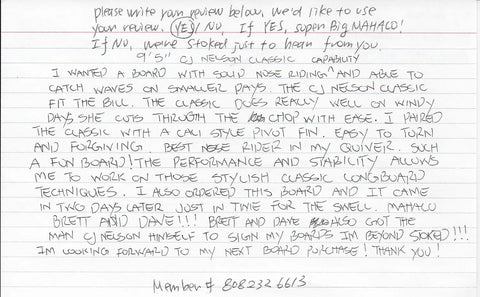 please write your review below, we'd like to use
your review. YES / NO, If YES, super Big MAHALO!
If NO, we're stoked just to hear from you.
9'5" CJ NELSON CLASSIC CAPABILITY
I WANTED A BOARD WITH SOLID NOSE RIDING ^ AND ABLE TO
CATCH WAVES ON SMALLER DAYS. THE CJ NELSON CLASSIC
FIT THE BILL. THE CLASSIC DOES REALLY WELL ON WINDY
DAYS SHE CUTS THROUGH THE CHOP WITH EASE. I PAIRED
THE CLASSIC WITH A CALI STYLE PIVOT FIN. EASY TO TURN
AND FORGIVING. BEST NOSE RIDER IN MY QUIVER. SUCH
A FUN BOARD! THE PERFORMANCE AND STABILITY ALLOWS
ME TO WORK ON THOSE STYLISH CLASSIC LONGBOARD
TECHNIQUES. I ALSO ORDERED THIS BOARD AND IT CAME
IN TWO DAYS LATER JUST IN TIME FOR THE SWELL. MAHALO
BRETT AND DAVE!!! BRETT AND DAVE ALSO GOT THE
MAN CJ NELSON HIMSELF TO SIGN MY BOARDS IM BEYOND STOKED!!!
IM LOOKING FORWARD TO MY NEXT BOARD PURCHASE! THANK YOU!
Member # 808 232 6613